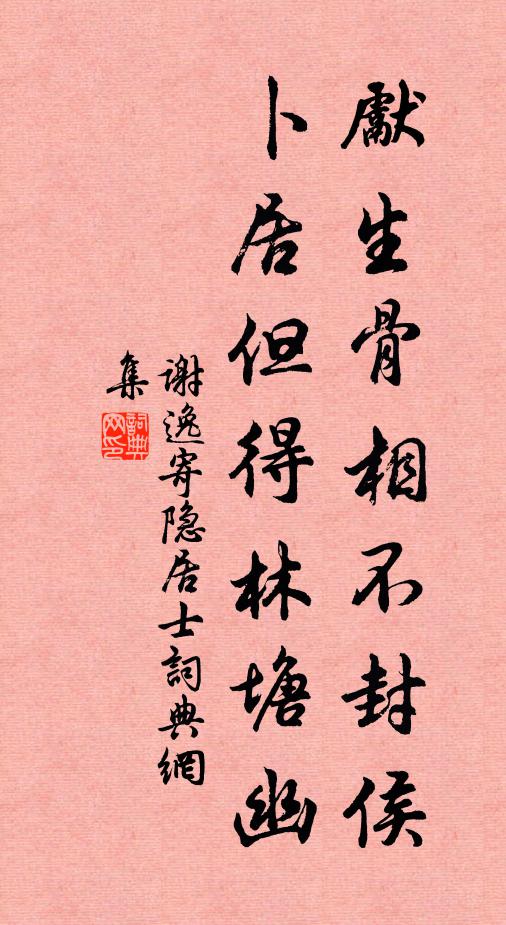 獻生骨相不封侯
卜居但得林塘幽
谢逸寄隐居士詞典網
集
詞典
网印